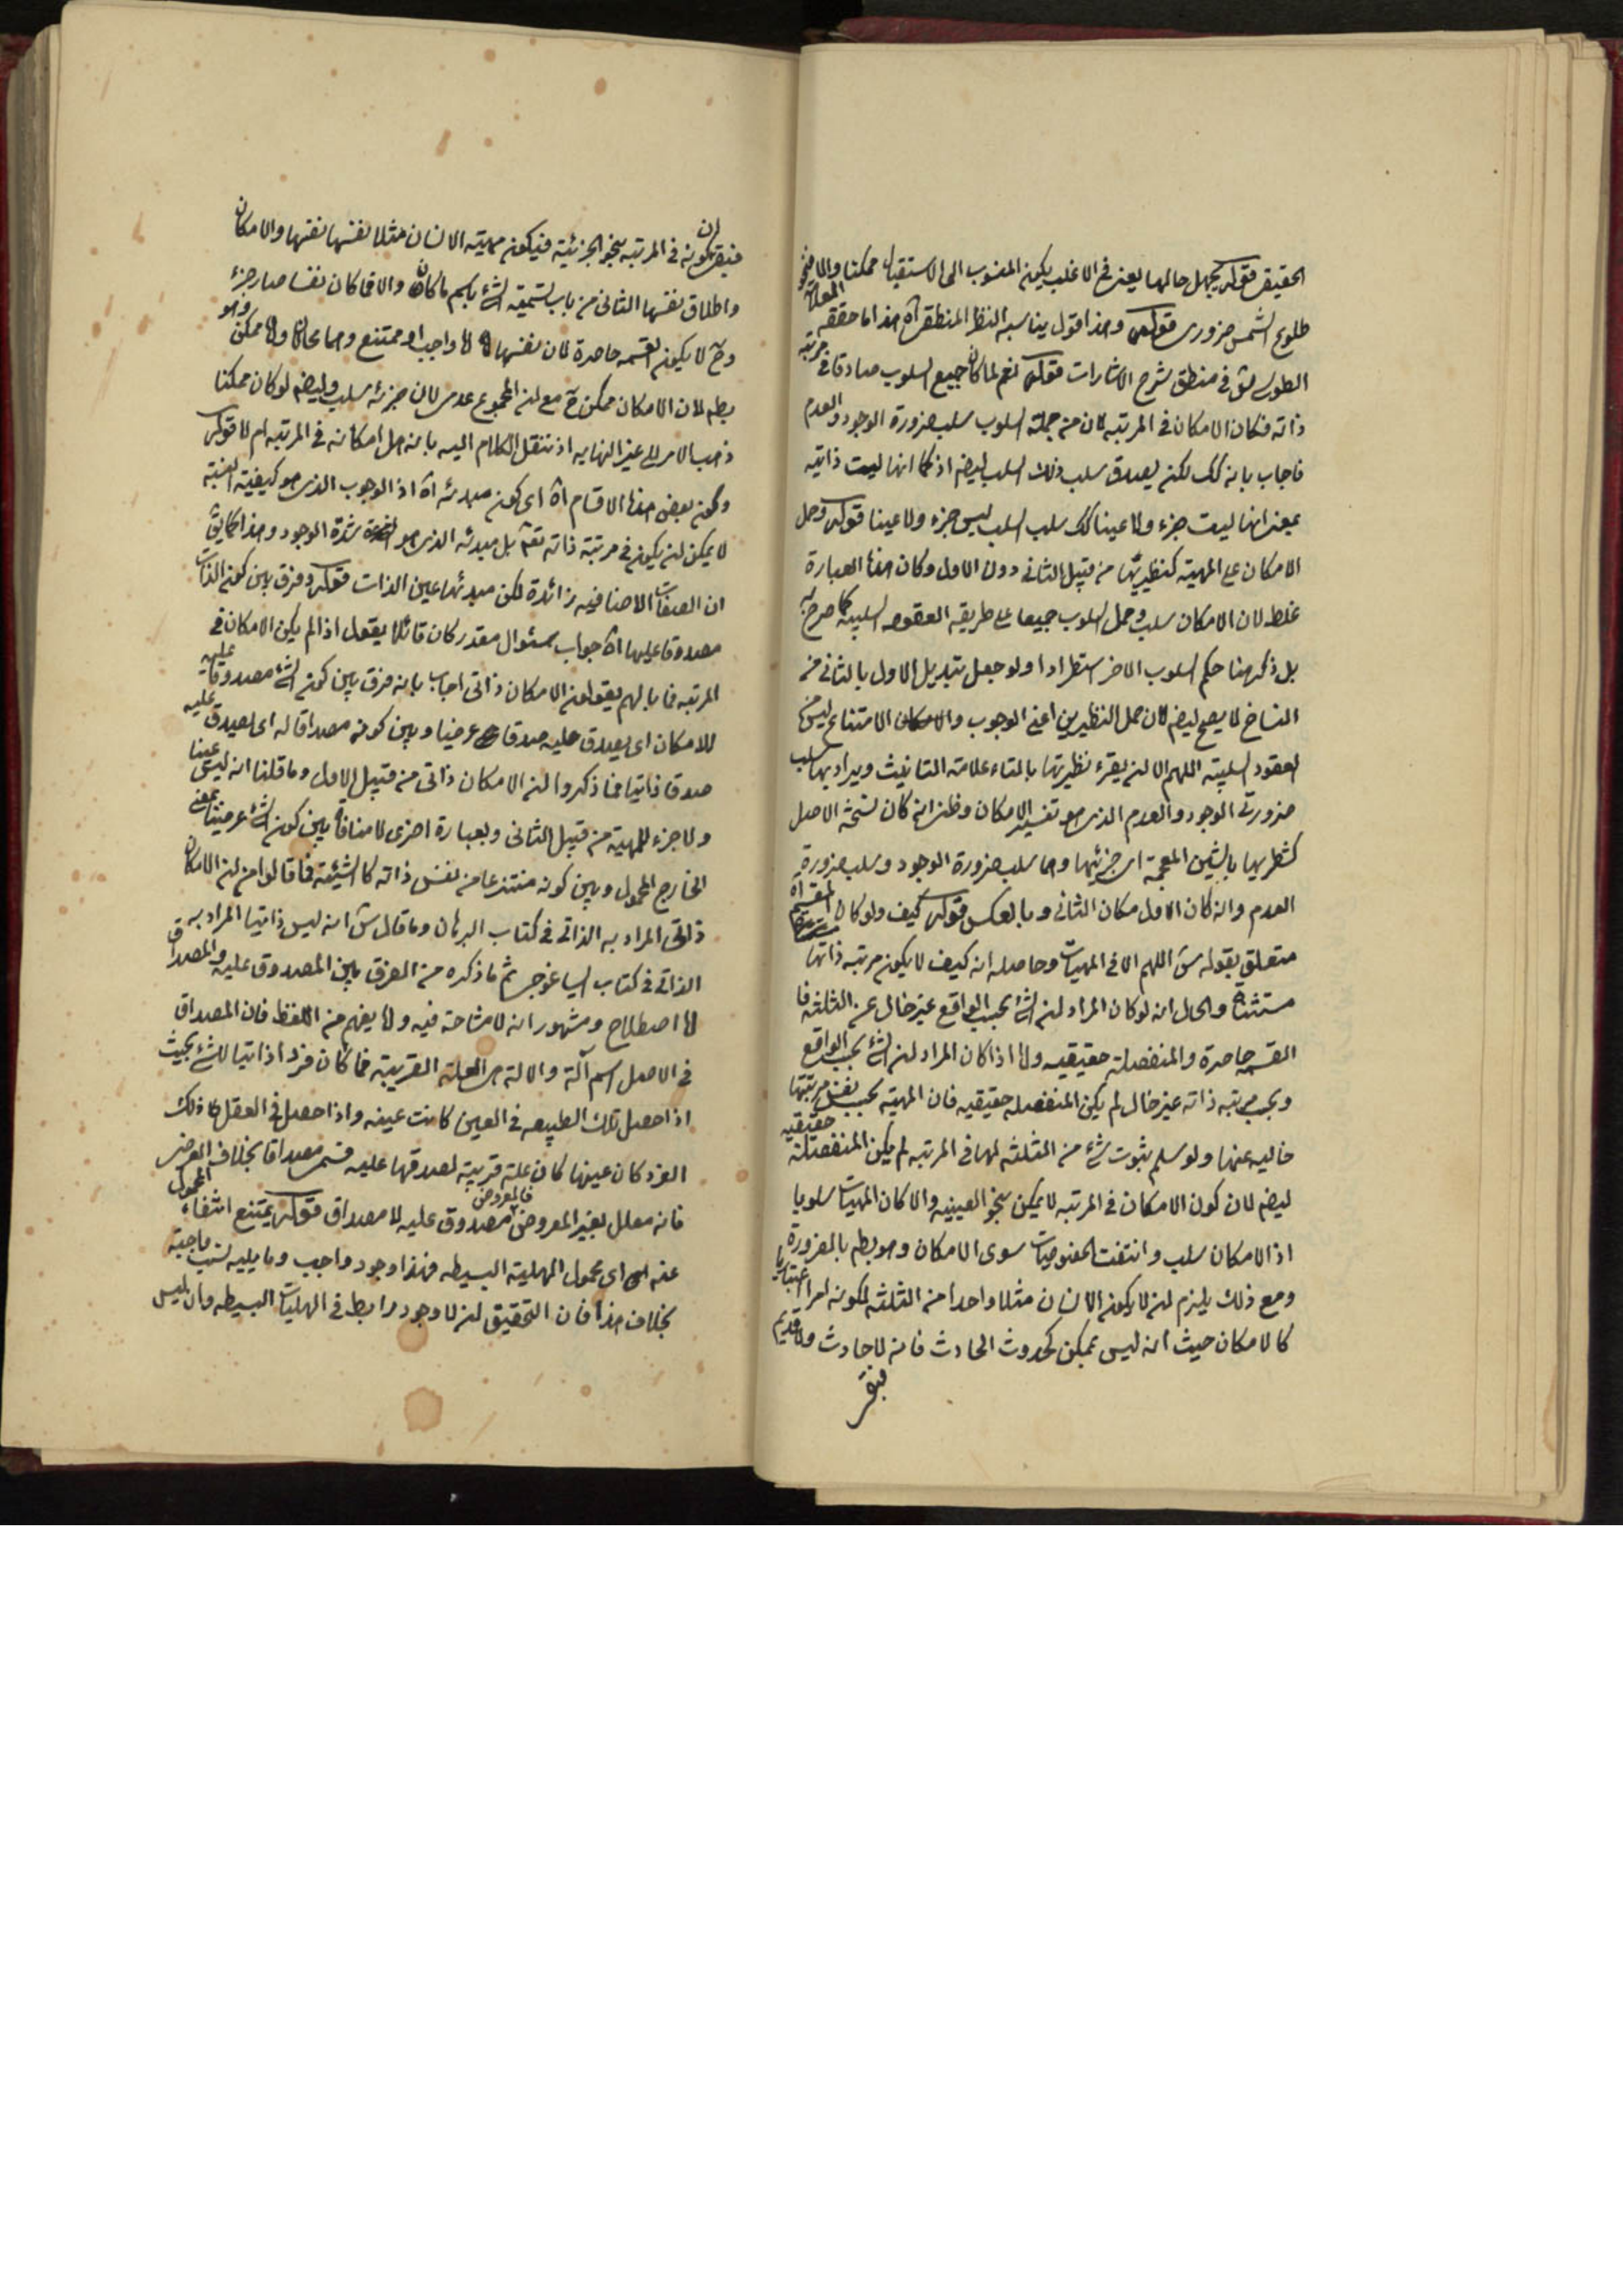 الحقيقى قوله يجهل حالها يعنى فى الاغلب يكون المنسوب الى الاستقبال ممكنا والا فنحو
طلوع الشمس ضرورى قوله وهذا قول يناسبه النظر المنطقى آه هذا ما حققه المعلا
الطوسى فى منطق شرح الاشارات قوله نعم لما كان جميع السلوب صادقا فى مرتبة
ذاته فكان الامكان فى المرتبه لان من جملة السلوب سلب ضرورة الوجود والعدم
فاجاب بانه كك لكنه يصدق سلب ذلك السلب ايضه اذ كما انها ليست ذاتيه
بمعنى انها ليست جزء ولا عينا كك سلب السلب ليس جزء ولا عينا قوله وحمل
الامكان على المهيه كنظيريها من قبيل الثانى دون الاول وكان هذه العبارة
غلط لان الامكان سلب وحمل السلوب جميعا على طريقه العقود السلبيه كما صرح به
بل ذكر هنا حكم السلوب الاخر استطرادا ولو جعل تبديل الاول بالثانى من
النساخ لا يصح ايضه لان حمل النظيرين اعنى الوجوب والامتناع ليس من
العقود السلبيه اللهم الا ان يقرء نظيرتها بالتاء علامة التانيث ويراد بها سلب
ضرورتى الوجود والعدم الذى هو تفسير الامكان وظنى انه كان نسخة الاصل
كشطريها بالشين المعجمة اى جزئيها وهما سلب ضرورة الوجود وسلب ضرورة
العدم وانه كان الاول مكان الثانى وبالعكس قوله كيف ولو كان المقسم آه
متعلق بقوله اللهم الا فى المهيات وحاصله انه كيف لا يكون مرتبه ذاتها
مستثناة والحال انه لو كان المراد ان الشئ بحسب الواقع غير خال عن الثلثه فا
القسمه حاصرة والمنفصلة حقيقيه واما اذا كان المراد ان الشئ بحسب الواقع
وبحسب مرتبه ذاته غير خال لم يكن المنفصله حقيقيه فان المهيه بحسب نفس مرتبتها
خاليه عنها ولو سلم ثبوت شئ من الثلثه لها فى المرتبه لم يكن المنفصلة حقيقيه
ايضه لان كون الامكان فى المرتبه لا يمكن بنحو العينيه والا كان المهيات سلوبا
اذ الامكان سلب وانتفت الخصوصيات سوى الامكان وهو بط بالضرورة
ومع ذلك يلزم ان لا يكون الانسان مثلا واحدا من الثلثه لكونه امرا اعتباريا
كالامكان حيث انه ليس بممكن كحدوث الحادث فانه لا حادث ولا قديم
فبقى
فبقى ان كونه فى المرتبه بنحو الجزئية فيكون مهيته الانسان مثلا نفسها نفسها والامكان
واطلاق نفسها الثانى من باب تسمية الشئ باسم ما كان والا فما كان نفسا صار جزء
وح لا يكون القسمه حاصرة لان نفسها لا واجب او ممتنع وهما محالان ولا ممكن وهو
بط لان الامكان ممكن ح مع ان المجموع عدمى لان جزئه سلب وايضه لو كان ممكنا
ذهب الامر الى غير النهايه اذ ننقل الكلام اليه بانه هل امكانه فى المرتبه ام لا قوله
وكون بعض هذه الاقسام آه اى كون مبدئه آه اذ الوجوب الذى هو كيفية النسبة
لا يمكن ان يكون فى مرتبة ذاته تع بل مبدئه الذى هو شدة الوجود وهذا كما يق
ان الصفات الاضافيه زائدة لكن مبدئها عين الذات قوله وفرق بين كون الذات
مصدوقا عليها آه جواب سئوال مقدر كان قائلا يقول اذا لم يكن الامكان فى
المرتبه فما بالهم يقولون الامكان ذاتى اجاب بانه فرق بين كون الشئ مصدوقا عليه
للامكان اى يصدق عليه صدقا عرضيا وبين كونه مصداقا له اى يصدق عليه
صدقا ذاتيا فما ذكروا ان الامكان ذاتى من قبيل الاول وما قلنا انه ليس عينا
ولا جزء للمهية من قبيل الثانى وبعبارة اخرى لا منافاة بين كون الشئ عرضيا بمعنى
الخارج المحمول وبين كونه منتزعا من نفس ذاته كالشيئيه فما قالوا من ان الامكان
ذاتى المراد به الذاتى فى كتاب البرهان وما قال انه ليس ذاتيا المراد به
الذاتى فى كتاب ايساغوجى ثم ما ذكره من الفرق بين المصدوق عليه والمصداق
اما اصطلاح ومشهور انه لا مشاحة فيه واما يفهم من اللفظ فان المصداق
فى الاصل اسم آلة والالة هى العلة القريبة فما كان فردا ذاتيا للشئ بحيث
اذا حصل تلك الطبيعه فى العين كانت عينه واذا حصل فى العقل ذلك
الفرد كان عينها كان علة قريبة لصدقها عليه فسمى مصداقا بخلاف العرضى المحمول
فانه معلل بغير المعروض فالمعروض مصدوق عليه لا مصداق قوله يمتنع انتفاء
عنه اى محمول الهلية البسيطه فهذا وجود واجب وما يليه نسب واجبة
بخلاف هذا فان التحقيق ان لا وجود رابط فى الهليات البسيطه وان ليس